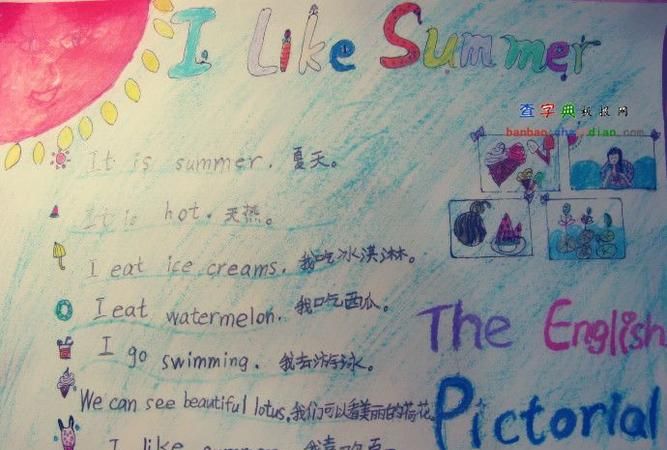 I Like Summer
查字典板报网
It is summer. 夏天。
It is hot. 天热。
I eat ice creams. 我吃冰淇淋。
I eat watermelon. 我吃西瓜。
I go swimming. 我去游泳。
We can see beautiful lotus. 我们可以看美丽的荷花
I like
The English
Pictorial